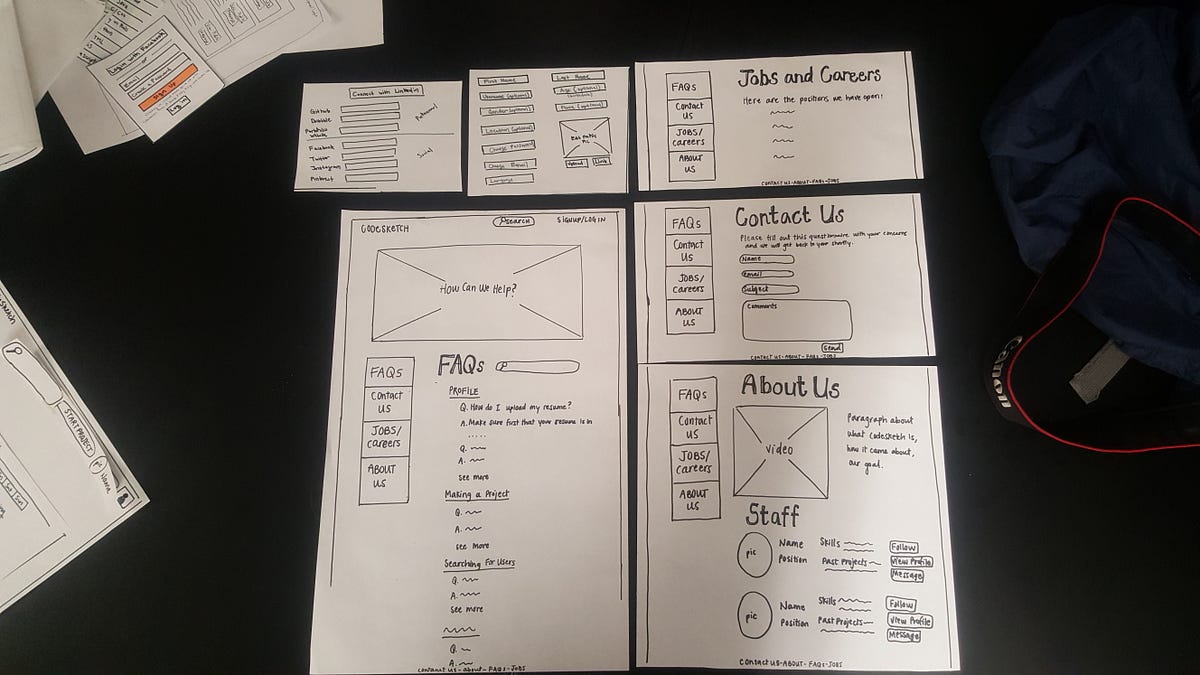 Login with Facebook
or
Email
Create a Password
Sign Up
Log in
Connect with LinkedIn
Github
Dribbble
Portfolio
website
Professional
Facebook
Twitter
Instagram
Pinterest
Social
First Name
Last Name
Username (optional)
Age (optional)
Gender (optional)
Phone (optional)
Location (optional)
Change Password
Change Email
Language
Edit Profile
Pic
Upload
Link
FAQs
Contact
US
JOBS/
careers
ABOUT
US
Jobs and Careers
Here are the positions we have open!
CONTACT US-ABOUT-FAQs-JOBS
FAQs
Contact
Us
JOBS/
careers
ABOUT
US
Contact Us
Please fill out this questionnaire with your concerns
and we will get back to your shortly.
Name
email
Subject
Comments
Send
CONTACT US-ABOUT-FAQs-JOBS
CODESKETCH
SEARCH
SIGNUP/LOGIN
How Can We Help?
FAQs
Contact
US
JOBS/
careers
ABOUT
US
FAQs
PROFILE
Q. How do I upload my resume?
A. Make sure first that your resume is in
.....
Q.
A.
see more
Making a Project
Q.
A.
see more
Searching For Users
Q.
A.
see more
Q.
A.
contact us-about-FAQs-JOBS
FAQs
Contact
US
JOBS/
careers
ABOUT
US
About Us
video
Paragraph about
what codesketch is,
how it came about,
our goal.
Staff
pic
Name
Position
Skills
Past Projects
Follow
View Profile
Message
pic
Name
Position
Skills
Past Projects
Follow
View Profile
Message
CONTACT US-ABOUT-FAQs-JOBS
START PROJECT
Name
Canon